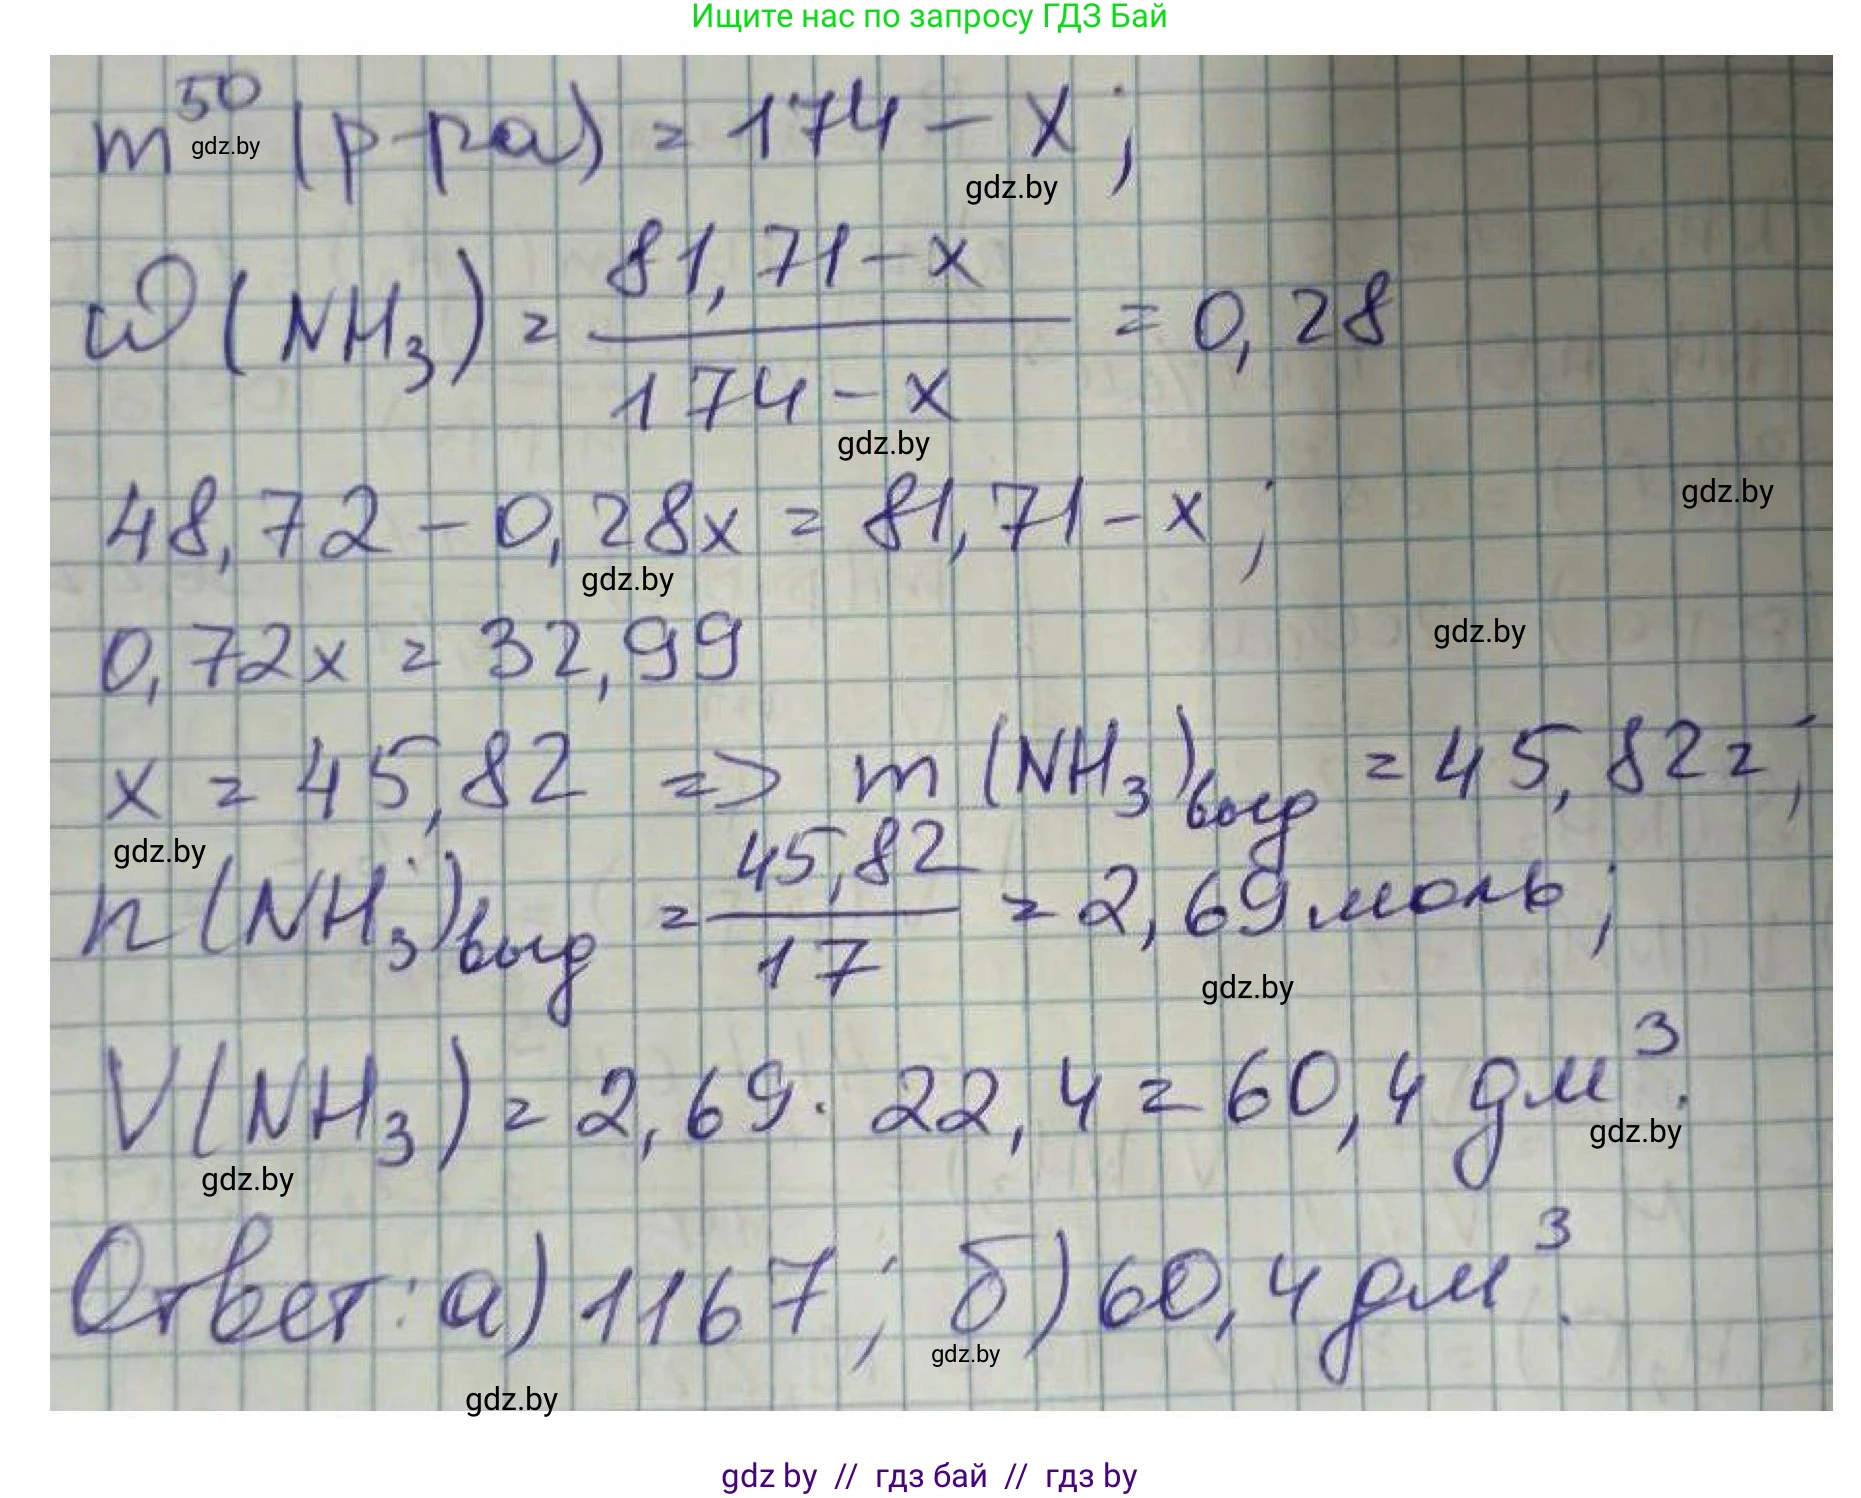 Ищите нас по запросу ГДЗ Бай
m⁵⁰(р-ра) = 174 - x;
gdz.by
gdz.by
ω(NH₃) = (81,71 - x)/(174 - x) = 0,28
gdz.by
48,72 - 0,28x = 81,71 - x;
gdz.by
gdz.by
0,72x = 32,99
gdz.by
x = 45,82 => m(NH₃)выд = 45,82г;
gdz.by
n(NH₃)выд = 45,82/17 = 2,69 моль;
gdz.by
V(NH₃) = 2,69 · 22,4 = 60,4 дм³.
gdz.by
gdz.by
Ответ: а) 1167; б) 60,4 дм³.
gdz.by
gdz.by
gdz by // гдз бай // гдз by